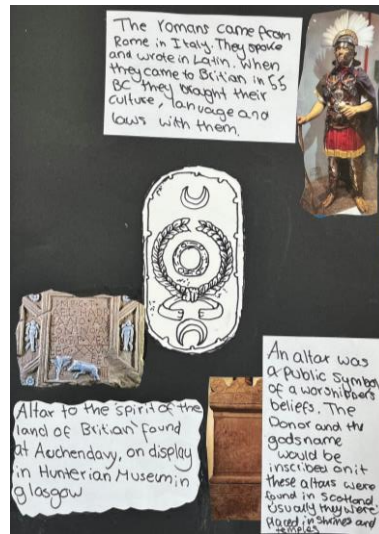 The romans came from
Rome in Italy. They spoke
and wrote in Latin. When
they came to Britian in 55
BC they brought their
culture, language and
laws with them.
Altar to the spirit of the
land of Britian found
at Auchendavy, on display
in Hunterian Museum in
glasgow
An altar was
a public symbol
of a worshippers
beliefs. The
Donor and the
gods name
would be
inscribed on it
these altars were
found in Scotland
usually they were
placed in shrines and
temples